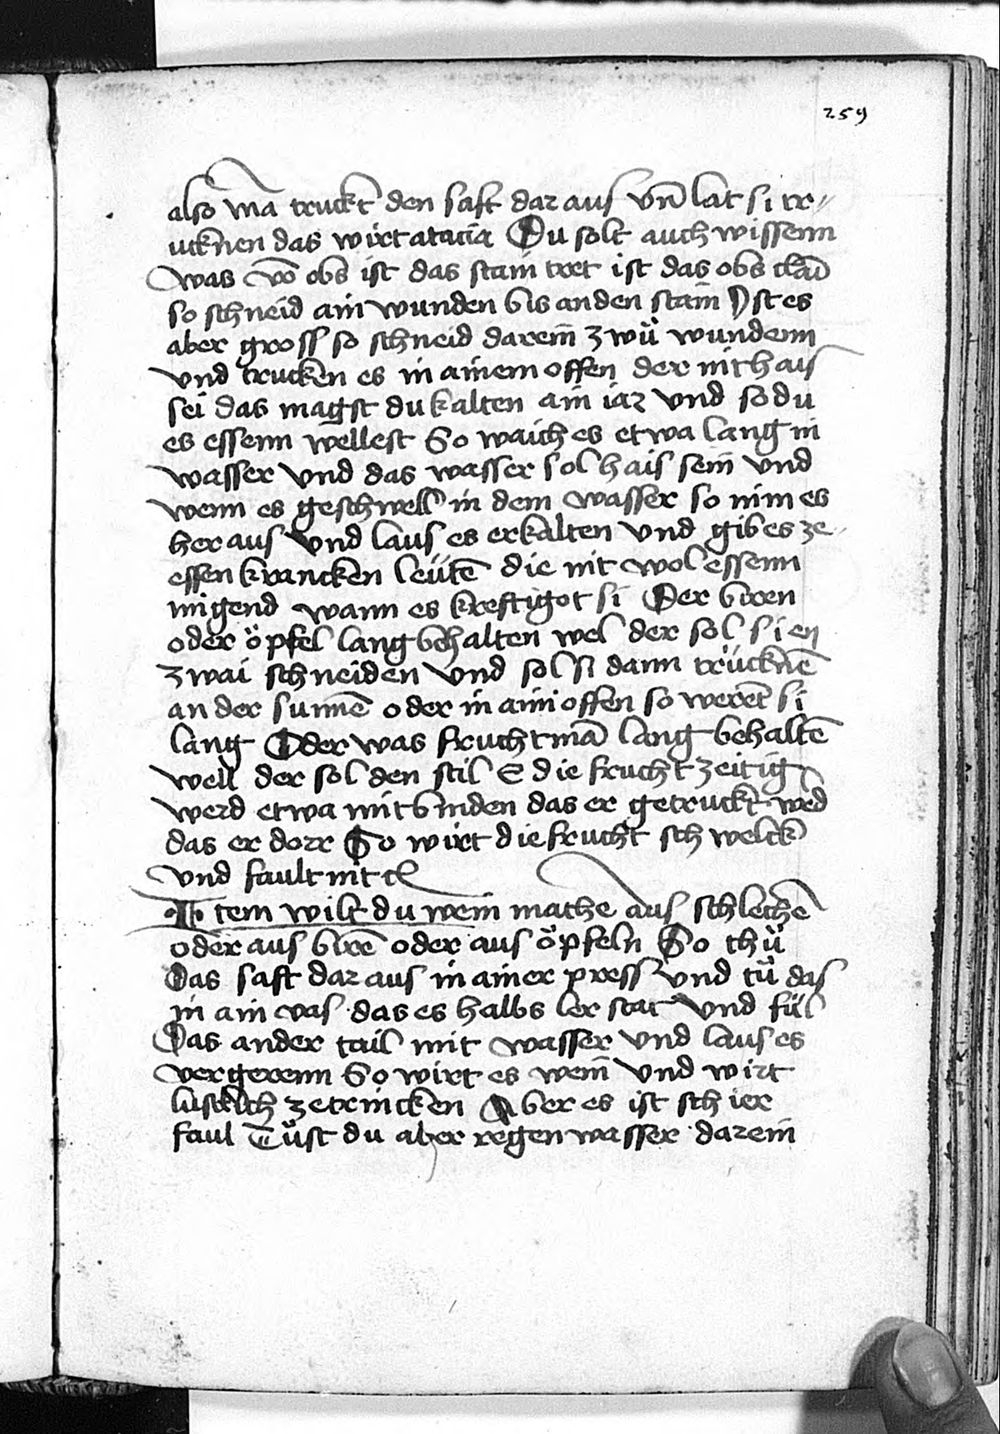 259
also mā truckt den saft dar aus vñ lat si tr-
ucknen das wirt atacia Du solt auch wissenn
was vō obs ist das stain tret ist das obs clain
so schneid ain wunden bis an den stain Ist es
aber gross so schneid darein zwů wundenn
vnd trucken es in ainem offen der nit hais
sei das magst du kalten ain iar vnd so du
es essenn wellest So waich es etwa lang in
wasser vnd das wasser sol hais sein vnd
wenn es geschwell in dem wasser so nim es
her aus vnd laus es erkalten vnd gib es ze
essen krancken leütē die nit wol essenn
migend wann es kreftigot si Der biren
oder öpfel lang behalten wel der sol si en
zwai schneiden vnd sol si dann trücknē
an der sunnē oder in aim offen so werēt si
lang Oder was frucht mā lang behaltē
well der sol den stil E die frucht zeitig
werd etwa mit binden das er getruckt werd
das er dorr So wirt die frucht schwelck
vnd fault nit etc
Item wilt du wein mache aus schlechē
oder aus birē oder aus öpfeln So thů
Das saft dar aus in ainer press vnd tů das
in ain vas das es halbs ler stat vnd fül
Das ander tail mit wasser vnd laus es
vergerenn So wirt es wein vnd wirt
lustklich ze trincken Aber es ist schier
faul Tůst du aber regen wasser darein